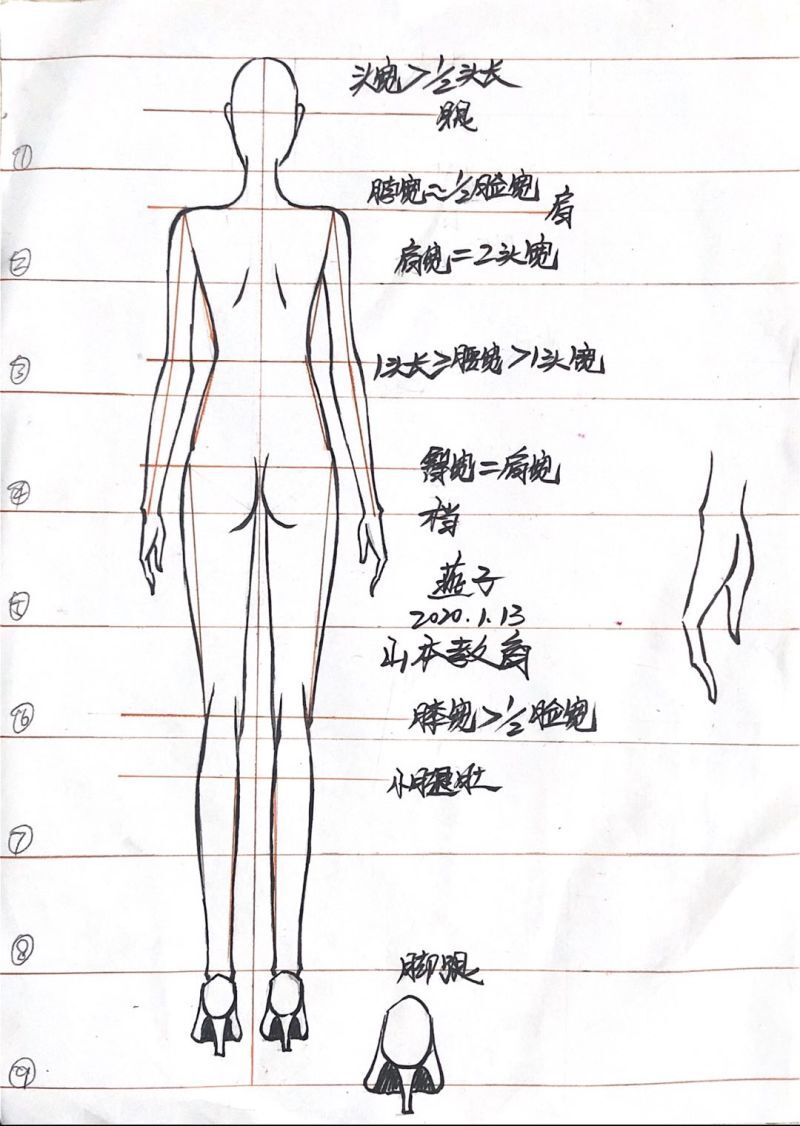 头宽>1/2头长
眼
①
脖宽≈1/2脸宽
肩
②
肩宽=2头宽
③
1头长≥腰宽>1头宽
臀宽=肩宽
④
裆
燕子
2020.1.13
⑤
⑥
膝宽>1/2脸宽
小腿肚
⑦
⑧
⑨